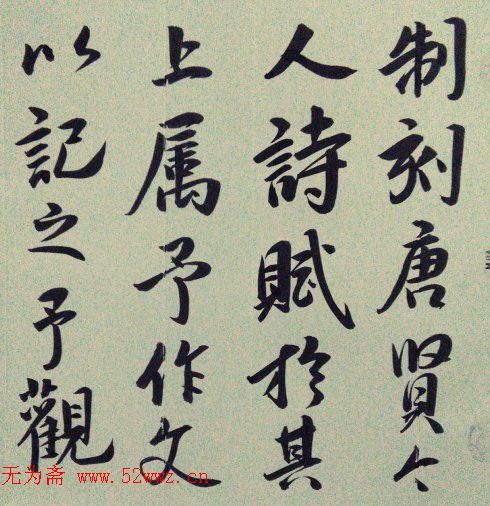 制刻唐贤今
人詩賦於其
上属予作文
以記之予觀
无为斋 www.52wwz.cn